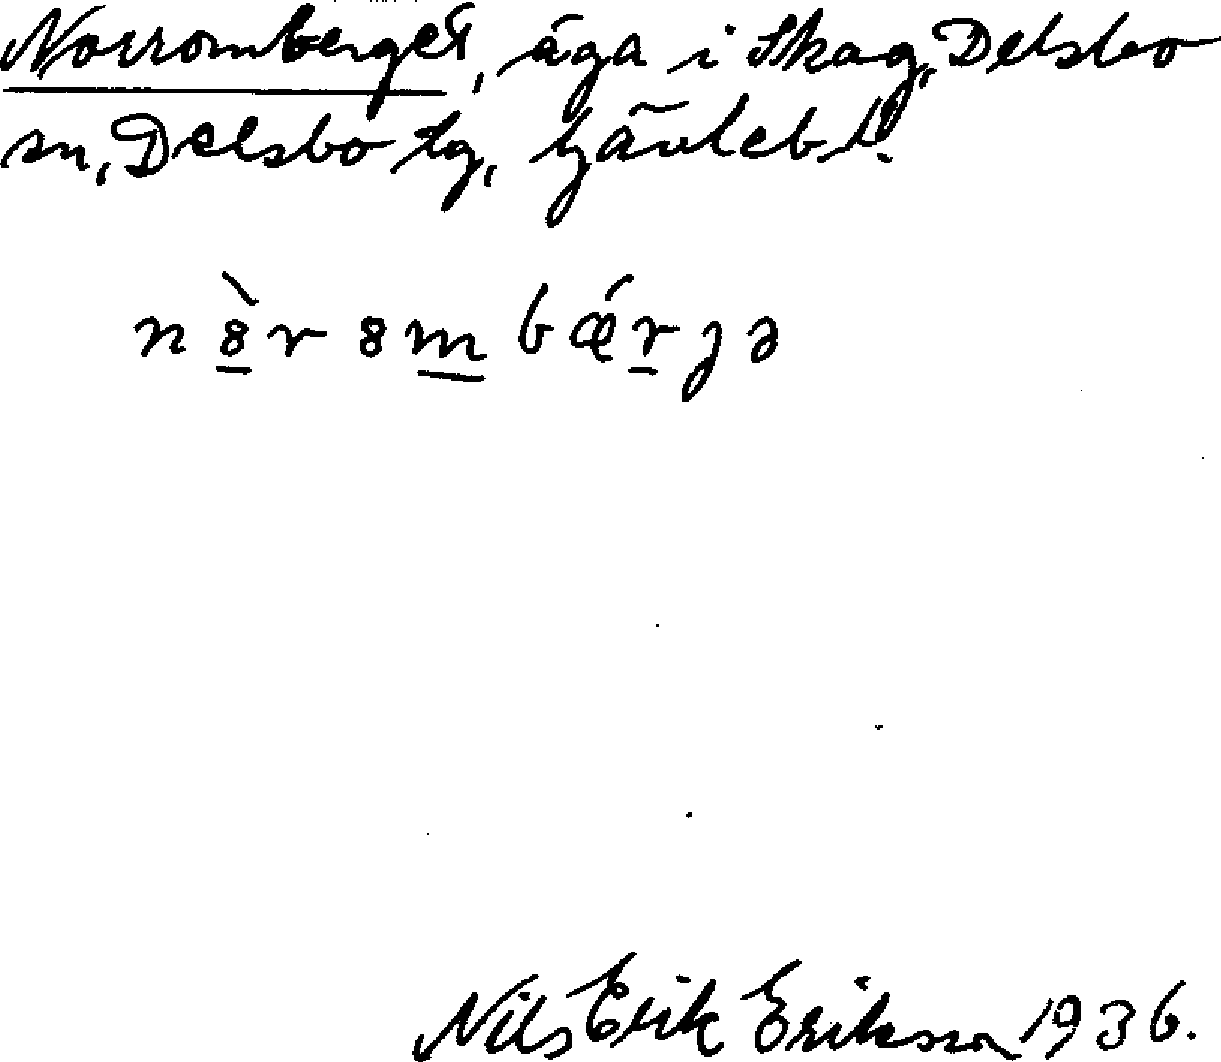 Norromberget, äga i Skog, Delsbo
sn, Delsbo tg, Gävleb. l.
n ȣ̠̀ r ȣ m̠ b ǽ r̠ ȷ ə
Nils Erik Eriksson 1936.